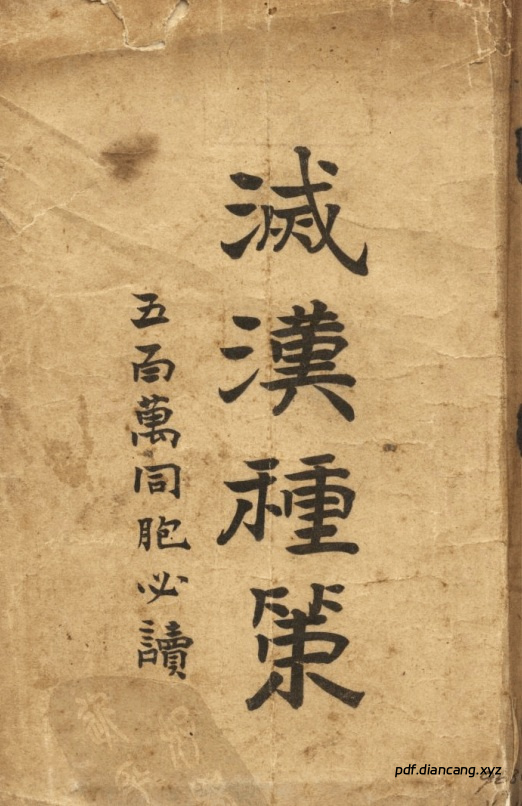 滅漢種策
五百萬同胞必讀
pdf.diancang.xyz